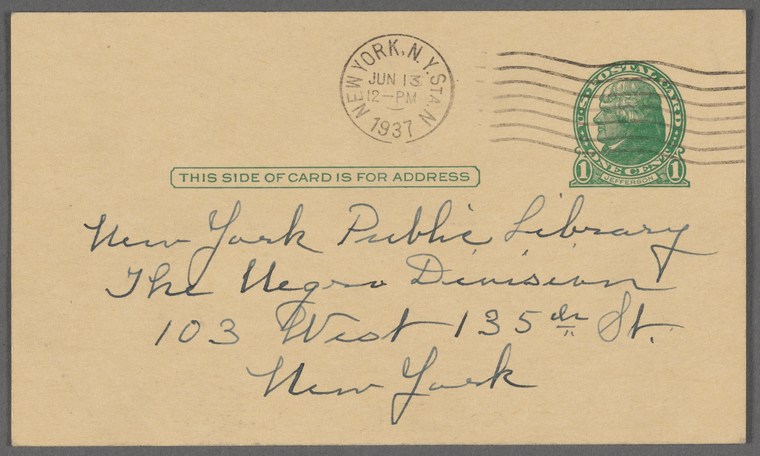 NEW YORK, N.Y. STA. N
JUN 13
12-PM
1937
U.S. POSTAL CARD
ONE CENT
1 JEFFERSON 1
THIS SIDE OF CARD IS FOR ADDRESS
New York Public Library
The Negro Division
103 West 135th St.
New York